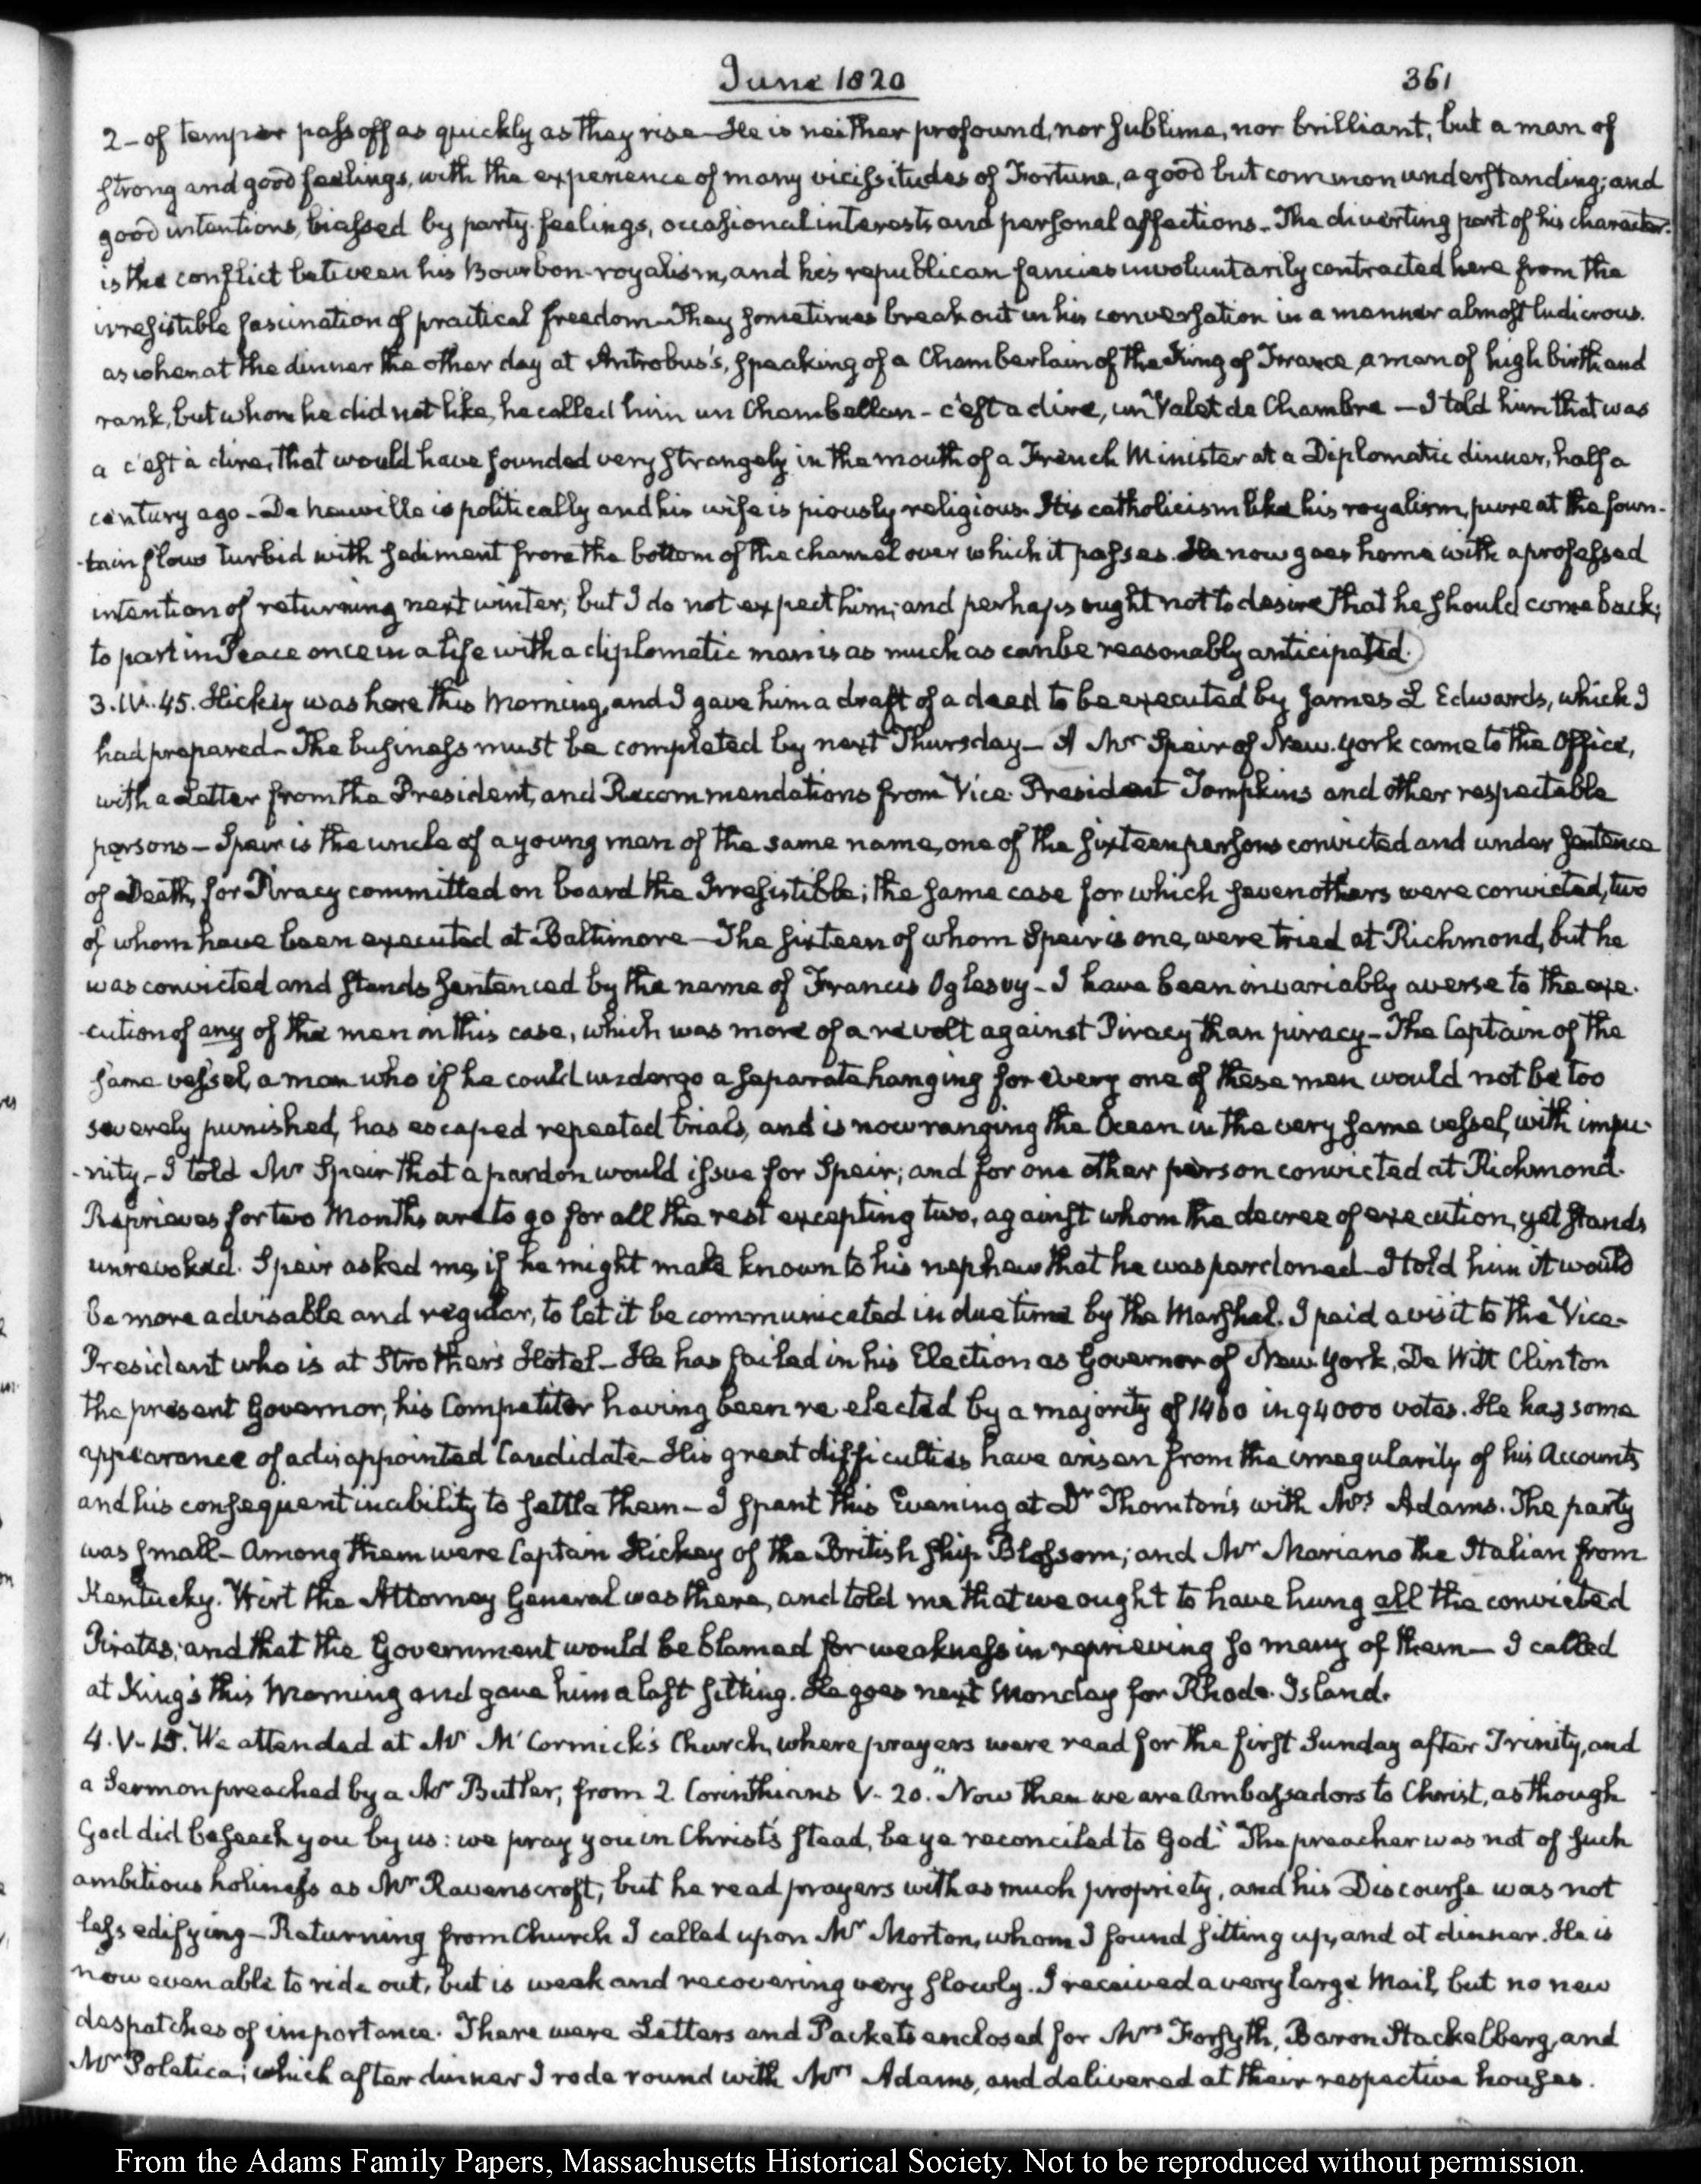 June 1820
361
2 - of temper pass off as quickly as they rise - He is neither profound, nor sublime, nor brilliant; but a man of
strong and good feelings, with the experience of many vicissitudes of Fortune, a good but common understanding; and
good intentions, biassed by party feelings, occasional interests and personal affections - The diverting part of his character
is the conflict between his Bourbon royalism, and his republican fancies involuntarily contracted here from the
irresistible fascination of practical freedom - They sometimes break out in his conversation in a manner almost ludicrous.
as when at the dinner the other day at Antrobus's, speaking of a Chamberlain of the King of France, a man of high birth and
rank, but whom he did not like, he called him un Chambellan - c'est a dire, un Valet de Chambre - I told him that was
a c'est à dire, that would have sounded very strangely in the mouth of a French Minister at a Diplomatic dinner, half a
century ago - De Neuville is politically and his wife is piously religious - His catholicism like his royalism, pure at the foun-
-tain flows turbid with sediment from the bottom of the channel over which it passes. He now goes home with a professed
intention of returning next winter; but I do not expect him; and perhaps ought not to desire that he should come back;
to part in Peace once in a life with a diplomatic man is as much as can be reasonably anticipated.
3. IV. 45. Hickey was here this Morning, and I gave him a draft of a deed to be executed by James L Edwards, which I
had prepared - The business must be completed by next Thursday - A Mr Speir of New-York came to the Office,
with a Letter from the President, and Recommendations from Vice-President Tompkins and other respectable
persons - Speir is the uncle of a young man of the same name, one of the sixteen persons convicted and under sentence
of Death, for Piracy committed on board the Irresistible; the same case for which seven others were convicted, two
of whom have been executed at Baltimore - The sixteen of whom Speir is one, were tried at Richmond, but he
was convicted and stands sentenced by the name of Francis Oglesvy - I have been invariably averse to the exe-
-cution of any of the men in this case, which was more of a revolt against Piracy than piracy - The Captain of the
same vessel, a man who if he could undergo a separate hanging for every one of these men would not be too
severely punished, has escaped repeated trials, and is now ranging the Ocean in the very same vessel, with impu-
-nity - I told Mr Speir that a pardon would issue for Speir; and for one other person convicted at Richmond.
Reprieves for two Months are to go for all the rest excepting two, against whom the decree of execution, yet stands
unrevoked. Speir asked me, if he might make known to his nephew that he was pardoned - I told him it would
be more advisable and regular, to let it be communicated in due time by the Marshal. I paid a visit to the Vice-
President who is at Strother's Hotel - He has failed in his Election as Governor of New York, De Witt Clinton
the present Governor, his Competitor having been re-elected by a majority of 1460 in 94000 votes. He has some
appearance of a disappointed Candidate - His great difficulties have arisen from the irregularity of his Accounts,
and his consequent inability to settle them - I spent this Evening at Dr Thornton's with Mrs Adams. The party
was small - Among them were Captain Hickey of the British ship Blossom; and Mr Mariano the Italian from
Kentucky. Wirt the Attorney General was there, and told me that we ought to have hung all the convicted
Pirates; and that the Government would be blamed for weakness in reprieving so many of them - I called
at King's this Morning and gave him a last sitting. He goes next Monday for Rhode-Island.
4. V-15. We attended at Mr McCormick's Church, where prayers were read for the first Sunday after Trinity, and
a Sermon preached by a Mr Butler, from 2. Corinthians V. 20. "Now then we are Ambassadors to Christ, as though
God did beseech you by us: we pray you in Christ's stead, be ye reconciled to God." The preacher was not of such
ambitious holiness as Mr Ravenscroft; but he read prayers with as much propriety, and his Discourse was not
less edifying - Returning from Church I called upon Mr Morton, whom I found sitting up, and at dinner. He is
now even able to ride out, but is weak and recovering very slowly. I received a very large Mail, but no new
despatches of importance. There were Letters and Packets enclosed for Mrs Forsyth, Baron Stackelberg, and
Mr Poletica; which after dinner I rode round with Mrs Adams, and delivered at their respective houses.
From the Adams Family Papers, Massachusetts Historical Society. Not to be reproduced without permission.